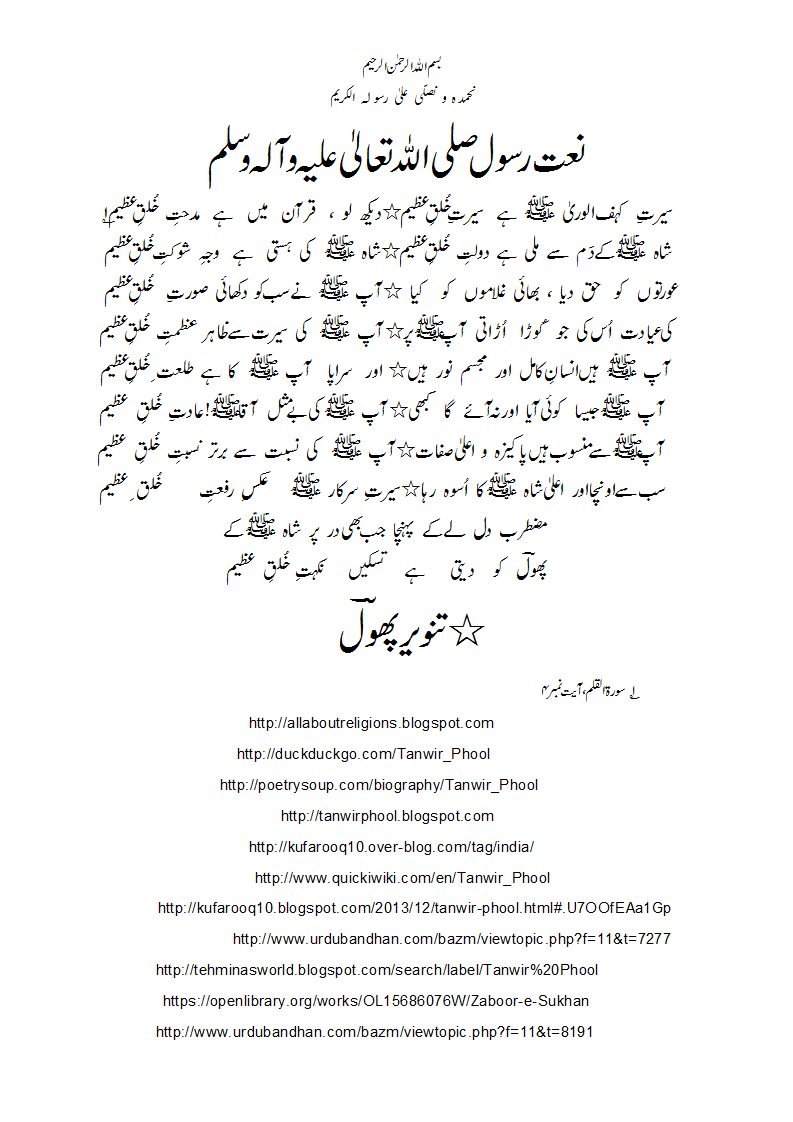 بسم اللہ الرحمٰن الرحیم
نحمدہ و نصلّی علیٰ رسولہ الکریم
نعت رسول صلی اللہ تعالیٰ علیہ وآلہ وسلم
سیرتِ کہف الوریٰ ﷺ ہے سیرتِ خُلقِ عظیم☆دیکھ لو ، قرآن میں ہے مدحتِ خُلقِ عظیم!۱؎
شاہ ﷺ کے دَم سے ملی ہے دولتِ خُلقِ عظیم☆شاہ ﷺ کی ہستی ہے وجہِ شوکتِ خُلقِ عظیم
عورتوں کو حق دیا ، بھائی غلاموں کو کیا ☆آپ ﷺ نے سب کو دکھائی صورتِ خُلقِ عظیم
کی عیادت اُس کی جو کوڑا اُڑاتی آپ ﷺ پر☆آپ ﷺ کی سیرت سے ظاہر عظمتِ خُلقِ عظیم
آپ ﷺ ہیں انسانِ کامل اور مجسم نور ہیں☆ اور سراپا آپ ﷺ کا ہے طلعتِ خُلقِ عظیم
آپ ﷺ جیسا کوئی آیا اور نہ آئے گا کبھی☆آپ ﷺ کی بے مثل آقا ﷺ!عادتِ خُلقِ عظیم
آپ ﷺ سے منسوب ہیں پاکیزہ و اعلیٰ صفات☆آپ ﷺ کی نسبت سے برتر نسبتِ خُلقِ عظیم
سب سے اونچا اور اعلیٰ شاہ ﷺ کا اُسوہ رہا☆سیرتِ سرکار ﷺ عکسِ رفعتِ خُلقِ عظیم
مضطرب دل لے کے پہنچا جب بھی در پر شاہ ﷺ کے
پھولؔ کو دیتی ہے تسکیں نکہتِ خُلقِ عظیم
☆تنویر پھولؔ
۱؎ سورۃ القلم،آیت نمبر۴
http://allaboutreligions.blogspot.com
http://duckduckgo.com/Tanwir_Phool
http://poetrysoup.com/biography/Tanwir_Phool
http://tanwirphool.blogspot.com
http://kufarooq10.over-blog.com/tag/india/
http://www.quickiwiki.com/en/Tanwir_Phool
http://kufarooq10.blogspot.com/2013/12/tanwir-phool.html#.U7OOfEAa1Gp
http://www.urdubandhan.com/bazm/viewtopic.php?f=11&t=7277
http://tehminasworld.blogspot.com/search/label/Tanwir%20Phool
https://openlibrary.org/works/OL15686076W/Zaboor-e-Sukhan
http://www.urdubandhan.com/bazm/viewtopic.php?f=11&t=8191